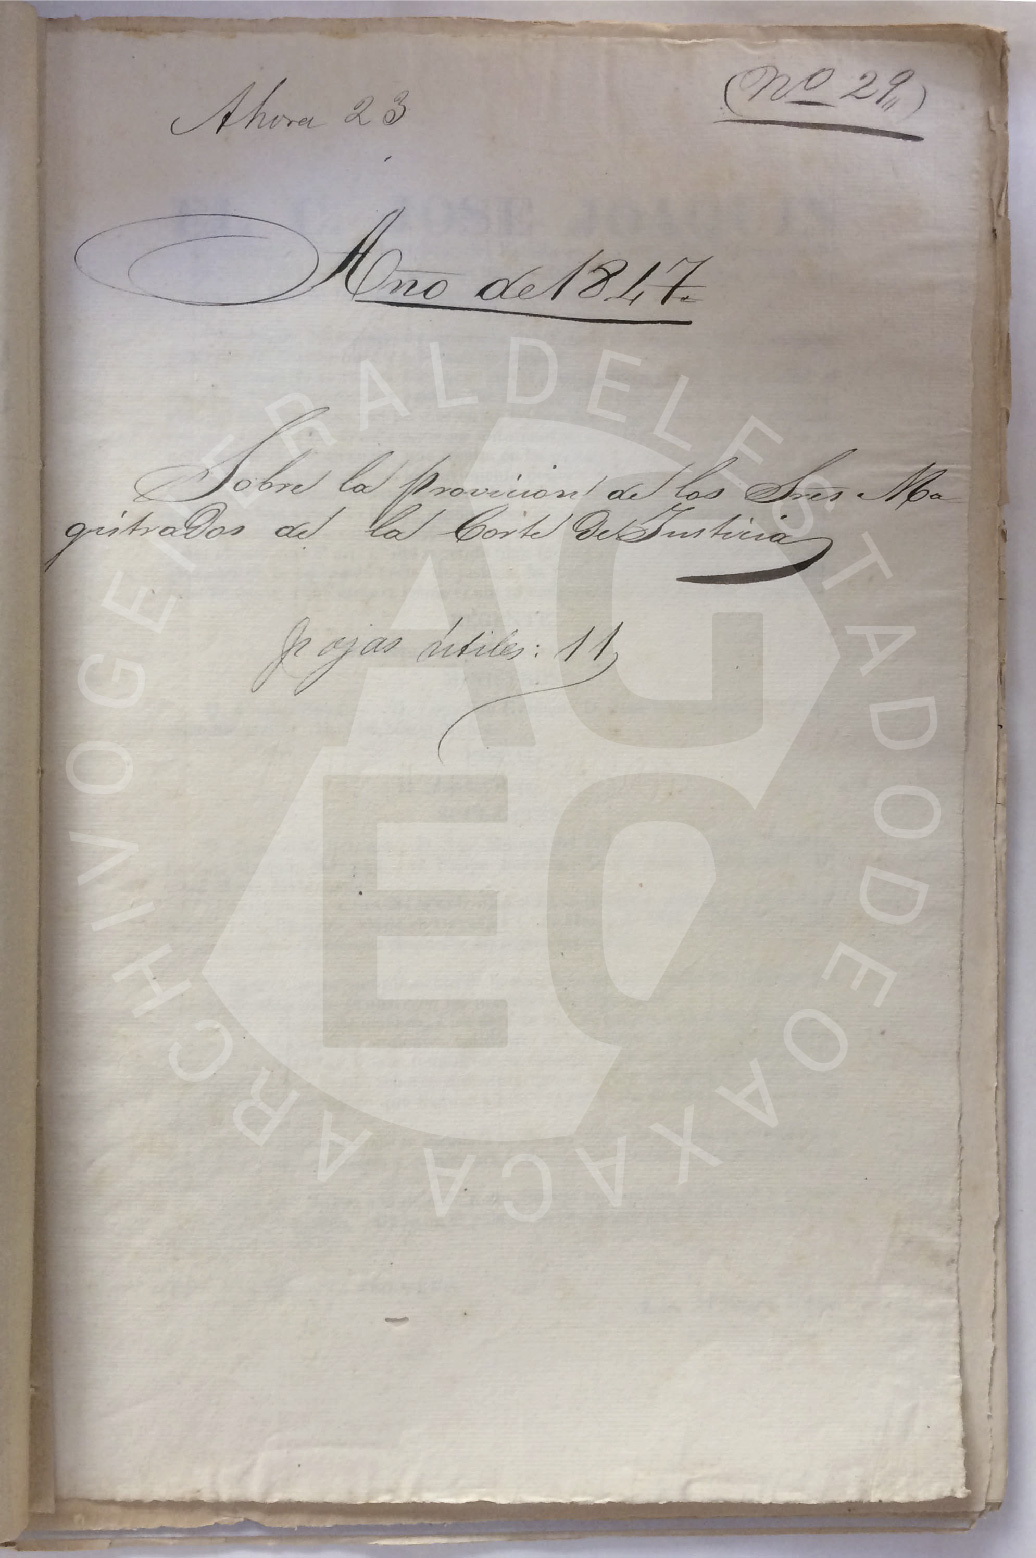 Ahora 23
(No 29,,)
Año de 1847.
Sobre la provicion de los Sres Ma
gistrados de la Corte De Justicia
fojas útiles: 11
ARCHIVO GENERAL DEL ESTADO DE OAXACA
AGEO